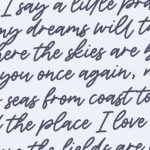 I say a little pra
my dreams will t
here the skies are b
you once again, m
seas from coast to
the place I love
the fields are